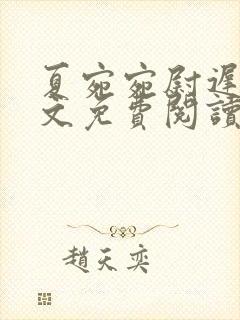 夏宛宛尉遲
文免費閱讀
趙天奕